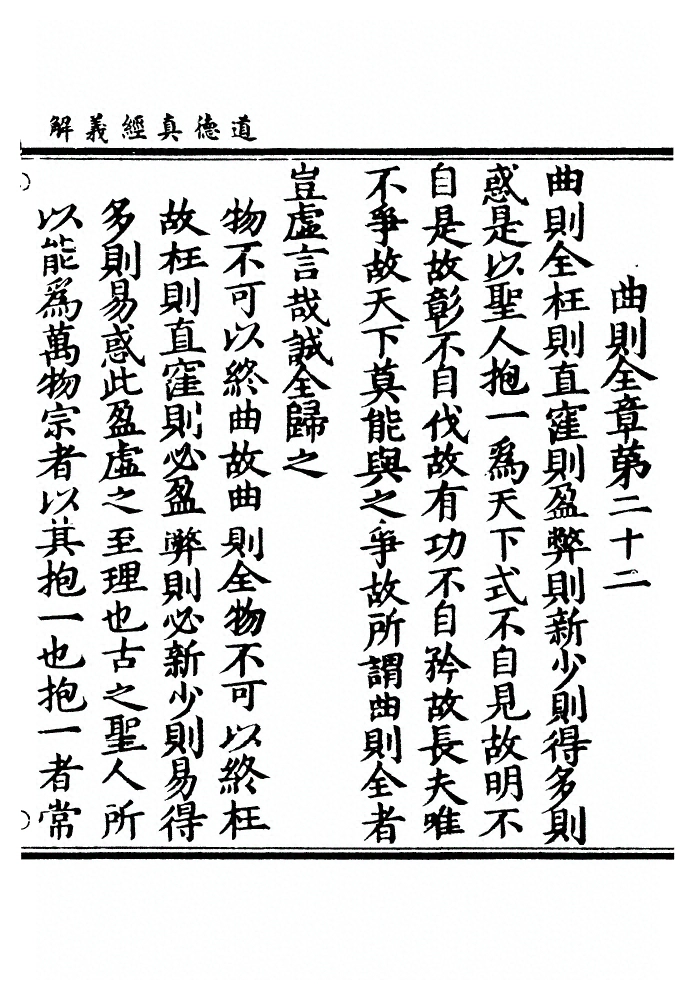 道德真經義解
曲則全章第二十二
曲則全枉則直窪則盈弊則新少則得多則
惑是以聖人抱一爲天下式不自見故明不
自是故彰不自伐故有功不自矜故長夫唯
不爭故天下莫能與之爭故所謂曲則全者
豈虛言哉誠全歸之
物不可以終曲故曲則全物不可以終枉
故枉則直窪則必盈弊則必新少則易得
多則易惑此盈虛之至理也古之聖人所
以能爲萬物宗者以其抱一也抱一者常